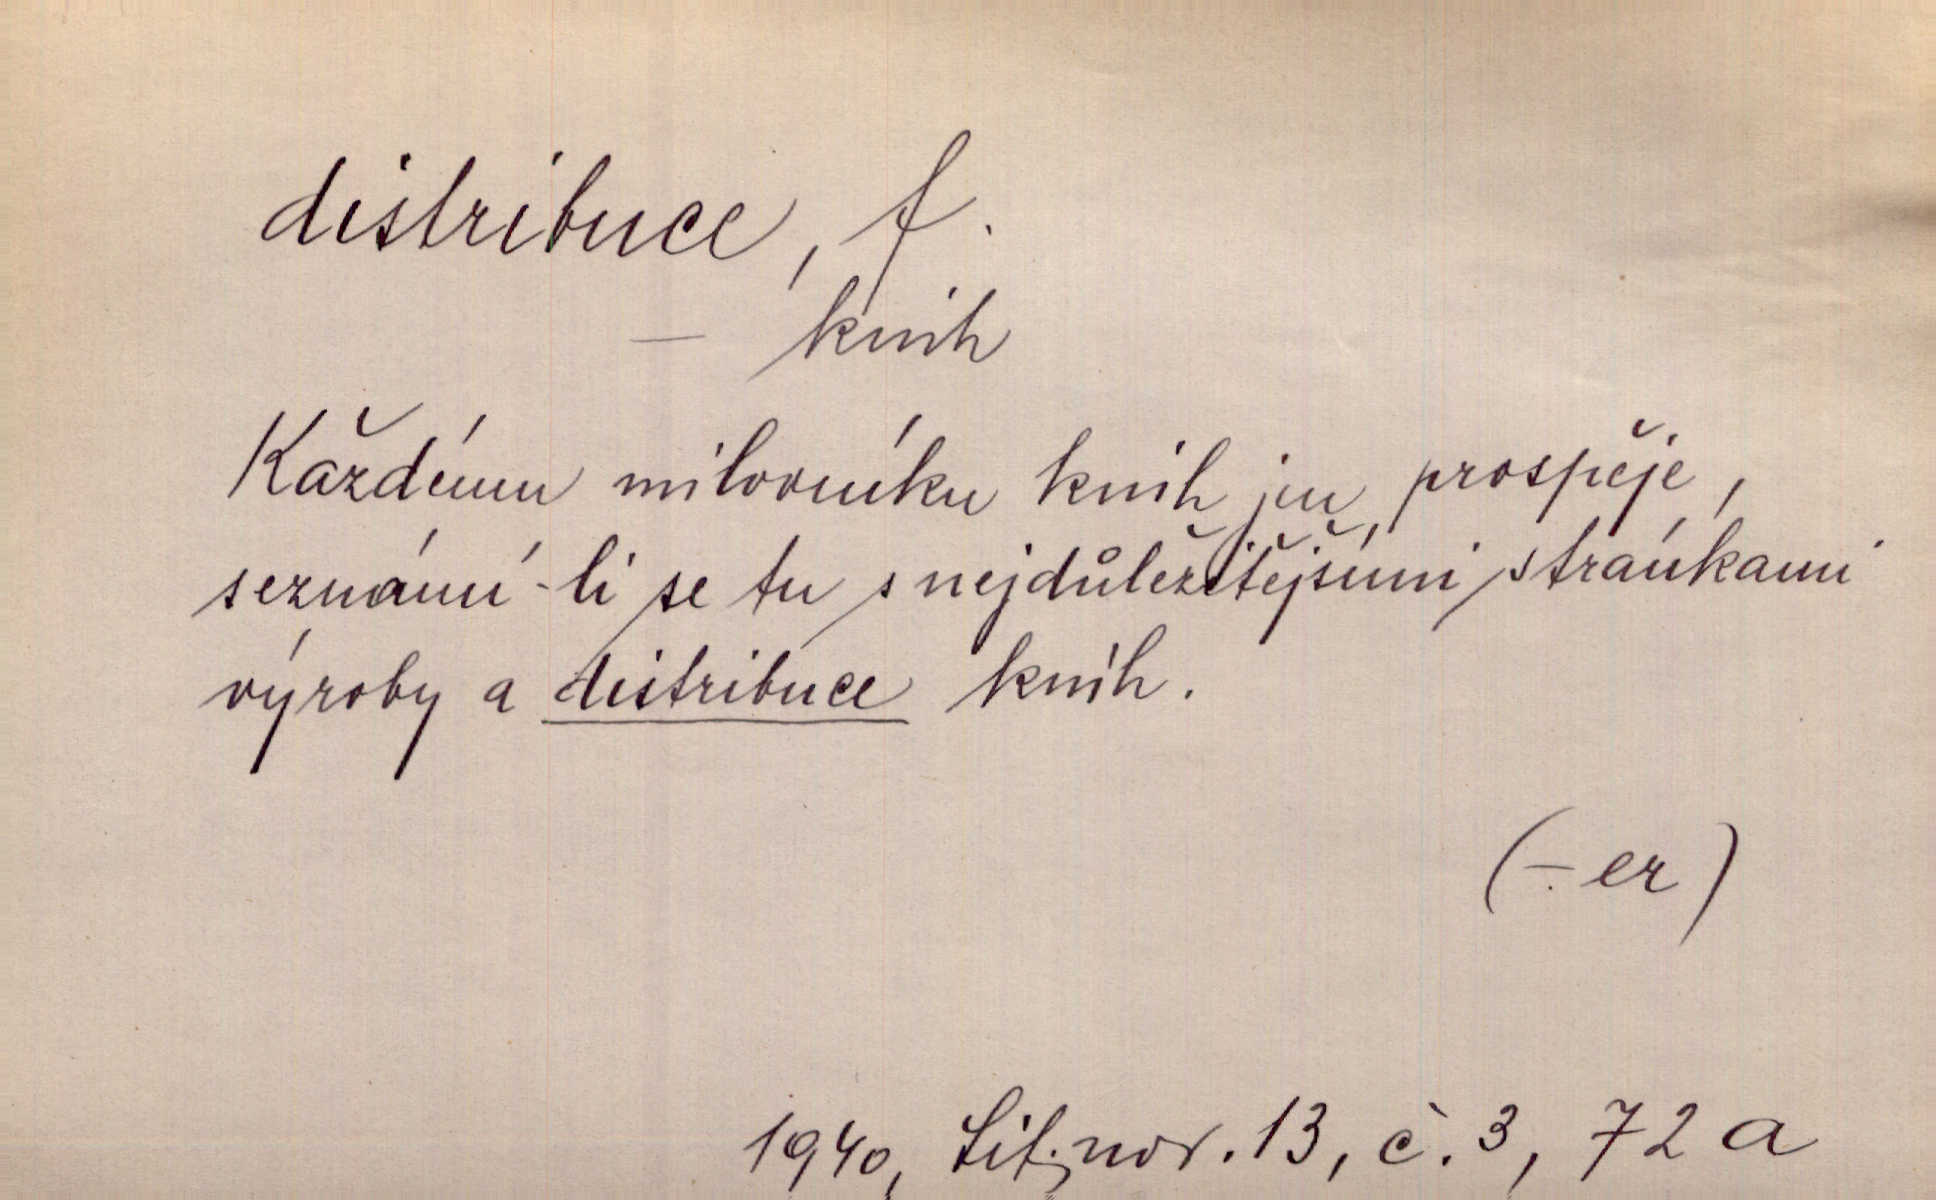 distribuce, f.
— knih
Každému milovníku knih jen prospěje,
seznámí-li se tu s nejdůležitějšími stránkami
výroby a distribuce knih.
(-er)
1940, Lit. nov. 13, č. 3, 72 a